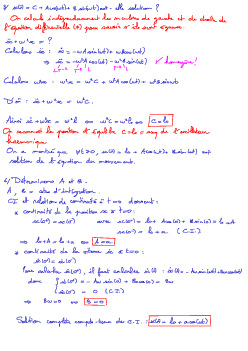 3/ x(t) = C + A cos(ωt) + B sin(ωt) est-elle solution ?
On calcule indépendamment les membres de gauche et de droite de
l'équation différentielle (E) pour savoir s'ils sont égaux
ẍ + ω²x = ?
Calculons ẍ : ẋ = -Aω sin(ωt) + Bω cos(ωt)
ẍ = -ω²A cos(ωt) - ω²B sin(ωt) homogène !
Calculons ω²x : ω²x = ω²C + ω²A cos(ωt) + ω²B sin(ωt)
D'où : ẍ + ω²x = ω²C.
Ainsi ẍ + ω²x = ω²l₀ ⇔ ω²C = ω²l₀ ⇔ C = l₀
On reconnaît la position d'équilibre C = l₀ de l'oscillateur
harmonique
On a montré que ∀t ≥ 0, x(t) = l₀ + A cos(ωt) + B sin(ωt) est
solution de l'équation du mouvement.
4/ Déterminons A et B.
A, B = ctes d'intégration.
CI et relation de continuité à t=0 donnent :
* continuité de la position à t=0 :
x(0⁻) = x(0⁺) avec x(0⁺) = l₀ + A cos(0) + B sin(0) = l₀ + A
x(0⁻) = l₀ + a (C.I.)
⇒ l₀ + A = l₀ + a ⇔ A = a
* continuité de la vitesse à t=0 :
ẋ(0⁻) = ẋ(0⁺)
Pour calculer ẋ(0⁺), il faut calculer ẋ(t) : ẋ(t) = -Aω sin(ωt) + Bω cos(ωt)
donc ẋ(0⁺) = -Aω sin(0) + Bω cos(0) = Bω
ẋ(0⁻) = 0 (C.I.)
⇒ Bω = 0 ⇔ B = 0
Solution complète compte-tenu des C.I. : x(t) = l₀ + a cos(ωt)